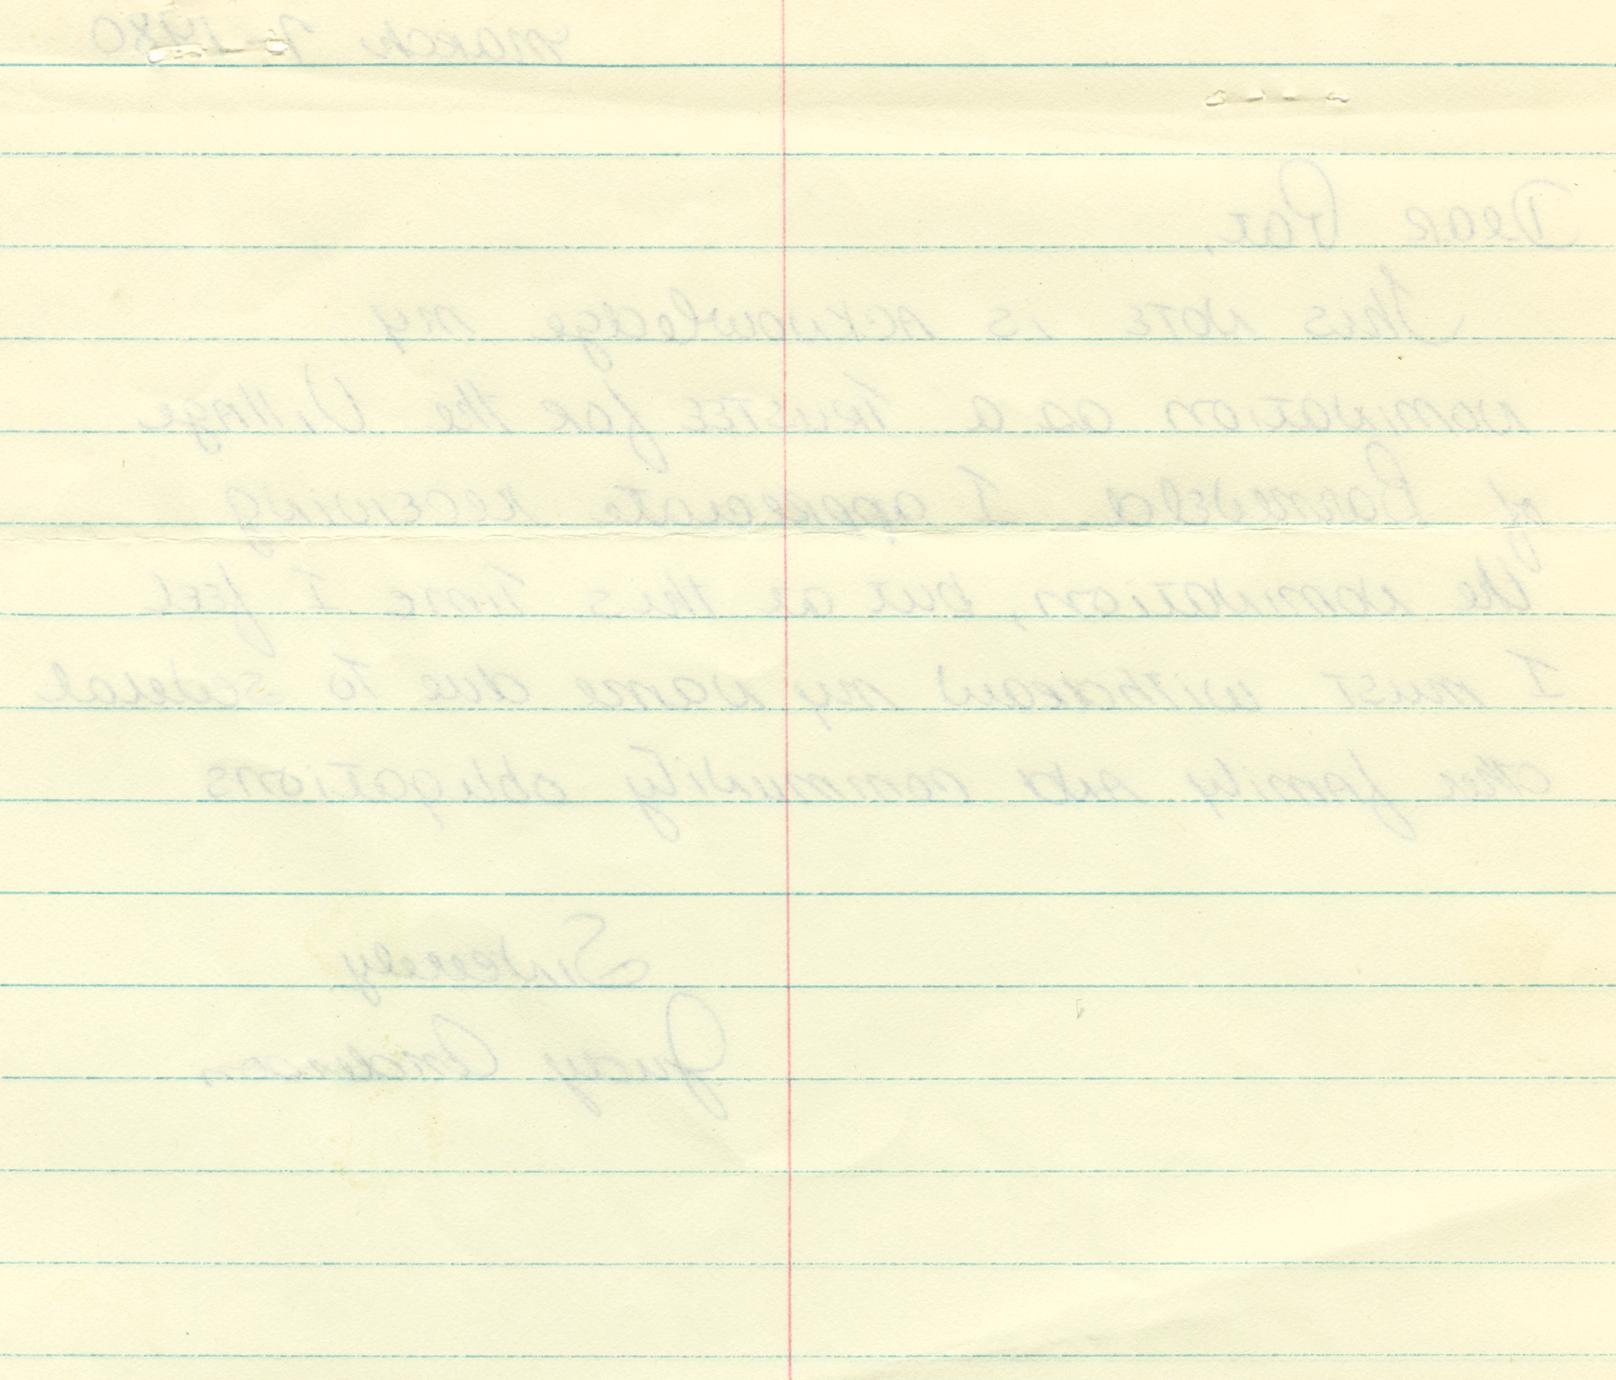 March 7 1980
Dear Pat,
This note is acknowledge my
nomination as a Trustee for the Village
of Barneveld I appreciate receiving
the nomination, but at this time I feel
I must withdraw my name due to several
other family and community obligations
Sincerely
Judy Anderson